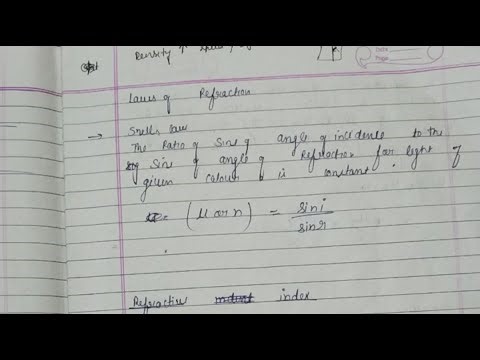 Density ↑ speed
Date
Page
Laws of Refraction
→ Snells law
The Ratio of Sine of angle of incidence to the
Sine of angle of Refraction for light of
given colour is constant.
(μ or n) = sin i / sin r
Refractive index